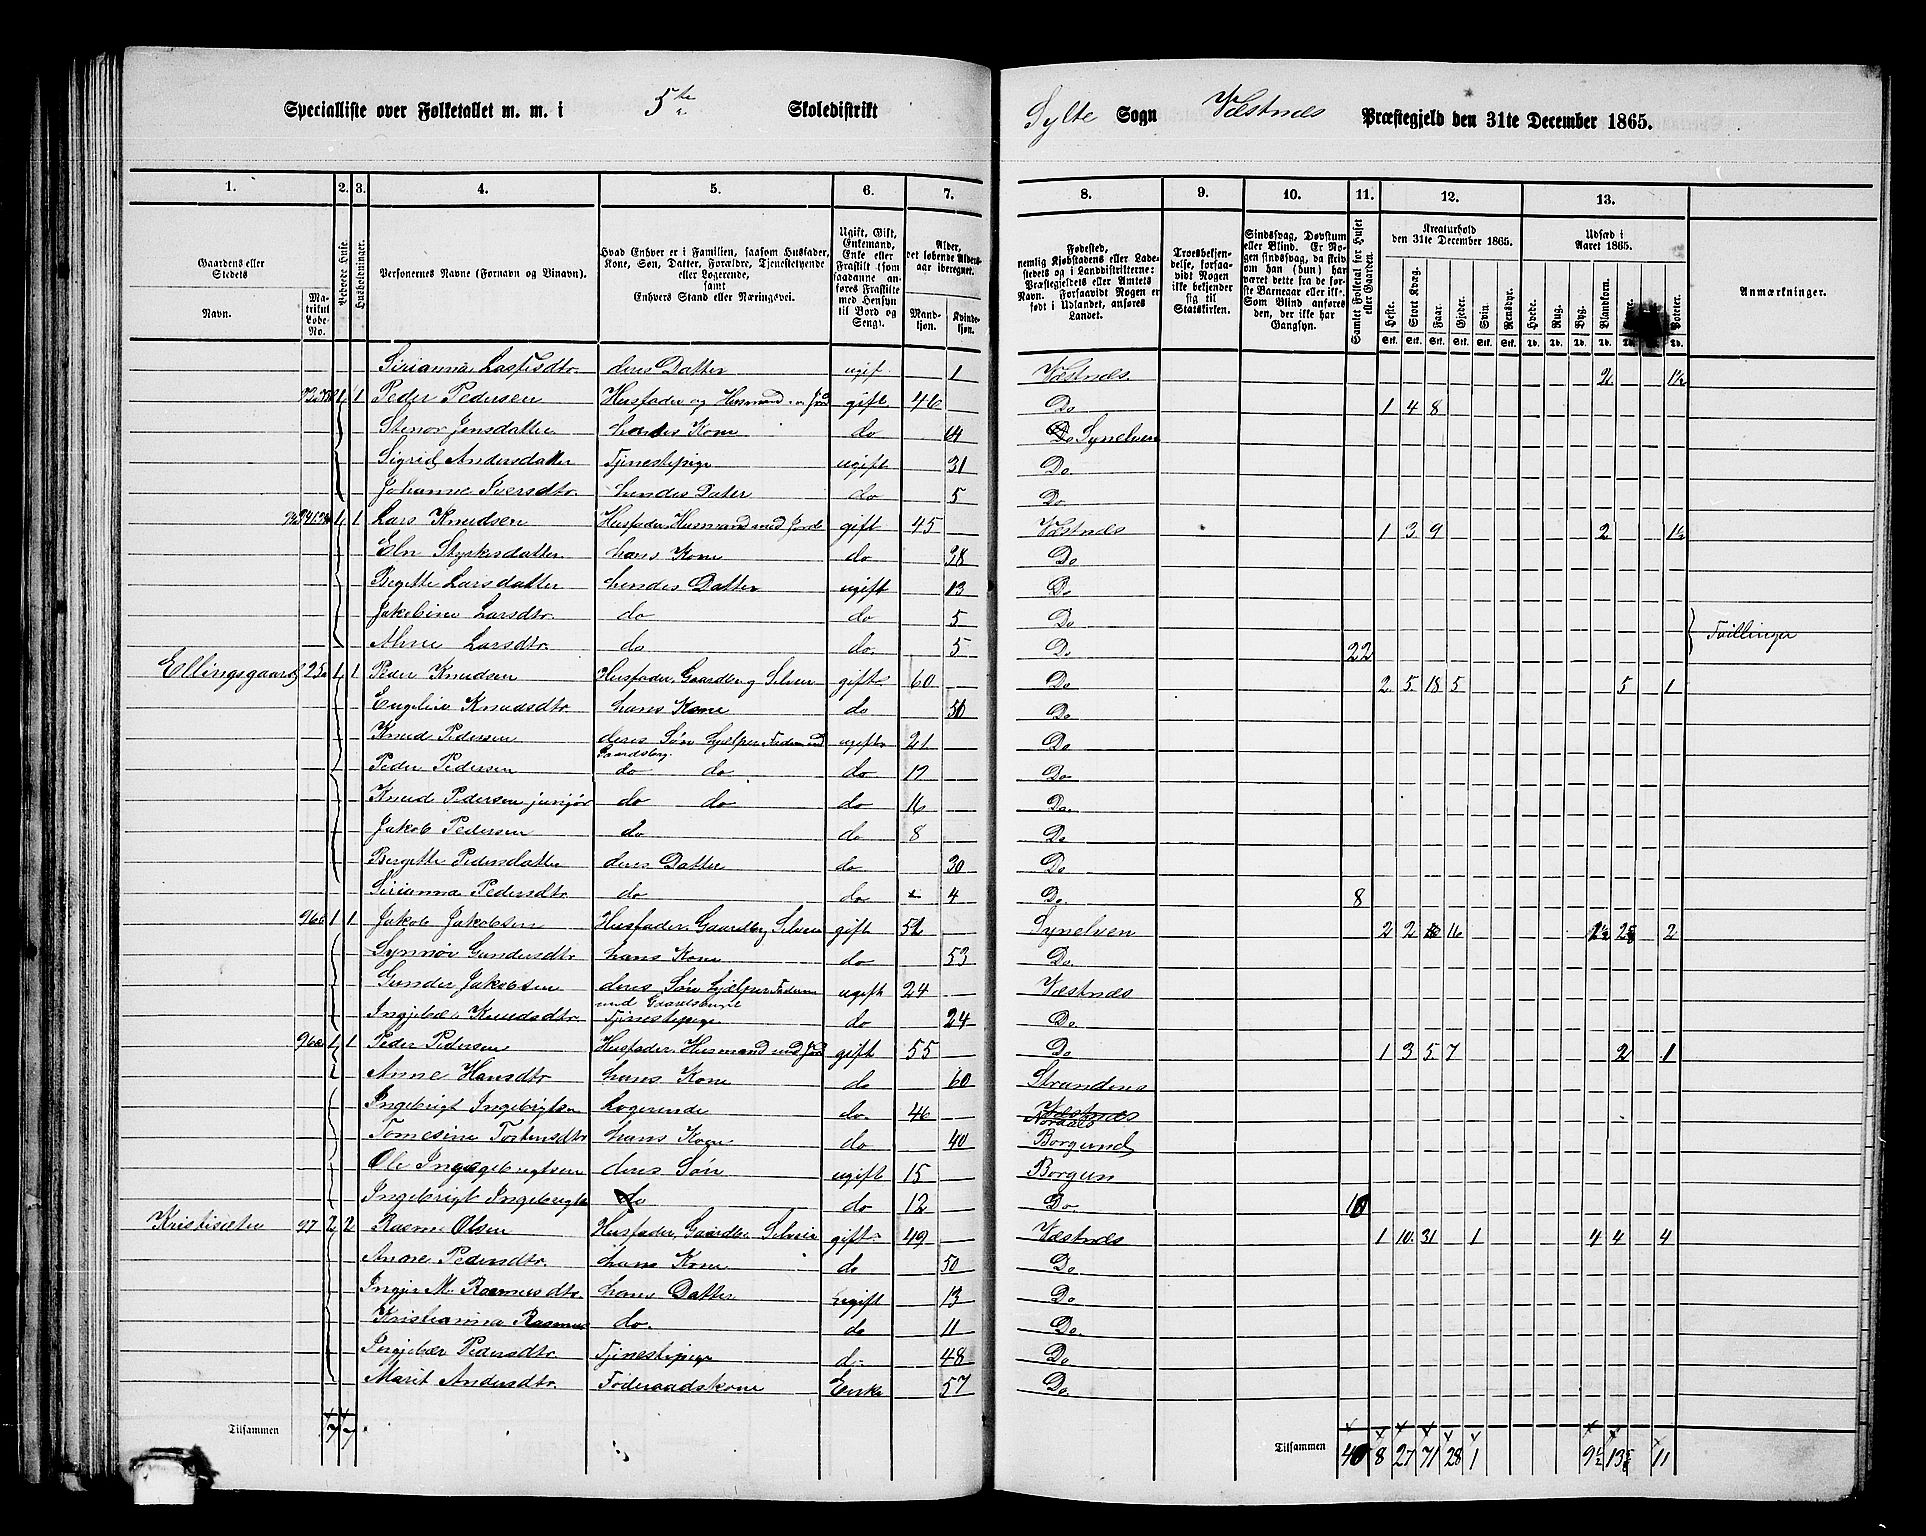 Specialliste over Folketallet m. m. i 5te Skoledistrikt Sylte Sogn Vestnæs Præstegjeld den 31te December 1865.
1. 2. 3. 4. 5. 6. 7. 8. 9. 10. 11. 12. 13.
Gaardens eller Stedets Navn. Matrikul Løbe-No. Beboede Huse. Husholdninger. Personernes Navne (Fornavn og Tilnavn).
Hvad Enhver er i Familien, saasom Husfader, Kone, Søn, Datter, Forældre, Tjenestetyende eller Logerende, samt Enhvers Stand eller Næringsvei.
Ugift, Gift, Enkemand, Enke eller Fraskilt (som saadanne anføres Fraskilte med Hensyn til Bord og Seng).
Alder, det løbende Alders-aar iberegnet. Mandkjøn. Kvindekjøn.
Fødested, nemlig Kjøbstadens eller Ladestedets og i Landdistrikterne: Præstegjeldets eller Amtets Navn. Forsaavidt Nogen er født i Udlandet, anføres Landet.
Troesbekjendelse, forsaavidt Nogen ikke bekjender sig til Statskirken.
Sindssvag, Døvstum eller Blind. Er Nogen sindssvag, da skrives om han (hun) har været dette fra de første Barneaar eller ikke. Som Blind anføres den, der ikke har Gangsyn.
Samlet Folketal for Huset eller Gaarden.
Kreaturhold den 31te December 1865. Heste. Stort Kvæg. Faar. Gjeder. Svin. Rensdyr.
Udsæd i Aaret 1865. Hvede. Rug. Byg. Blandkorn. Poteter.
Anmærkninger.
Sirianna deres Datter ugift 1 Vestnæs 2 1½
1 1 Peder Pedersen Husfader og Husmand m Jord gift 46 Do 1 4 8
Jensdatter Kone do Synelven
Sigrid Andersdatter Tjenestepige ugift 31 Do
Johanne Iversdtr. hendes Dater do 5 Do
1 1 Lars Knudsen Husfader, Husmand med Jord gift 45 Vestnæs 1 3 9 2 1½
Styrksdatter hans Kone do 38 Do
Larsdatter hendes Datter ugift 13 Do
Jakobine Larsdtr. do do 5 Do
Larsdtr. do do 5 Do 22 } Tvillinger
Ellingsgaard 1 1 Peder Knudsen Husfader, Gaardbr og Selveier gift 60 Do 2 5 18 5 5 1
Knudsdtr. hans Kone do 50 Do
Knud Pedersen deres Søn hjælper Faderen med ugift 21 Do
Gaardsbrug
Peder Pedersen do do do Do
Knud Pedersen junjør do do do 16 Do
Jakob Pedersen do do 8 Do
Pedersdatter deres Datter do 30 Do
Sirianna Pedersdtr. do do 4 Do 8
96b 1 1 Jakob Jakobsen Husfader, Gaardbr Selveier gift Synelven 2 2 16 2
Gundersdtr hans Kone do 53 Do
Gunder Jakobsen deres Søn hjælper Faderen ugift 24 Vestnæs
med Gaardsbruget
Knudsdtr Tjenestepige do 24 Do
1 1 Peder Pedersen Husfader, Husmand med Jord gift 55 Do 1 3 5 7 2 1
Anne Hansdtr hans Kone do 60
Ingebrigt Ingebrigtsen Logerende do 46 Vestnæs
Nordals
Tomesine hans Kone do 40 Borgund
Ole deres Søn ugift 15 Borgun
Ingebrigt do do 12 Do 10
97 2 2 Olsen Husfader, Gaardbr. Selveier gift 49 Vestnæs 1 10 31 1 4 4 4
Pedersdtr. hans Kone do 50 Do
M. Rasmusdtr. hans Datter ugift 13 Do
Kristianna Rasmus do do 11 Do
Pedersdtr. Tjenestepige do 48 Do
Marit Andersdtr. Føderaadskone Enke 57 Do
Tilsammen 7 7 Tilsammen 40 8 27 71 28 1 9½ 11